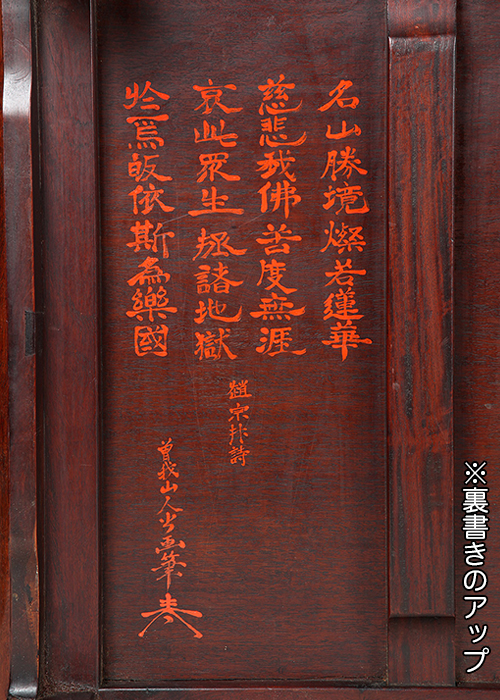 名山勝境燦若蓮華
慈悲我佛苦度無涯
哀此眾生拯諸地獄
於焉皈依斯為樂國
趙宗抃詩
曽我山人画筆
※裏書きのアップ